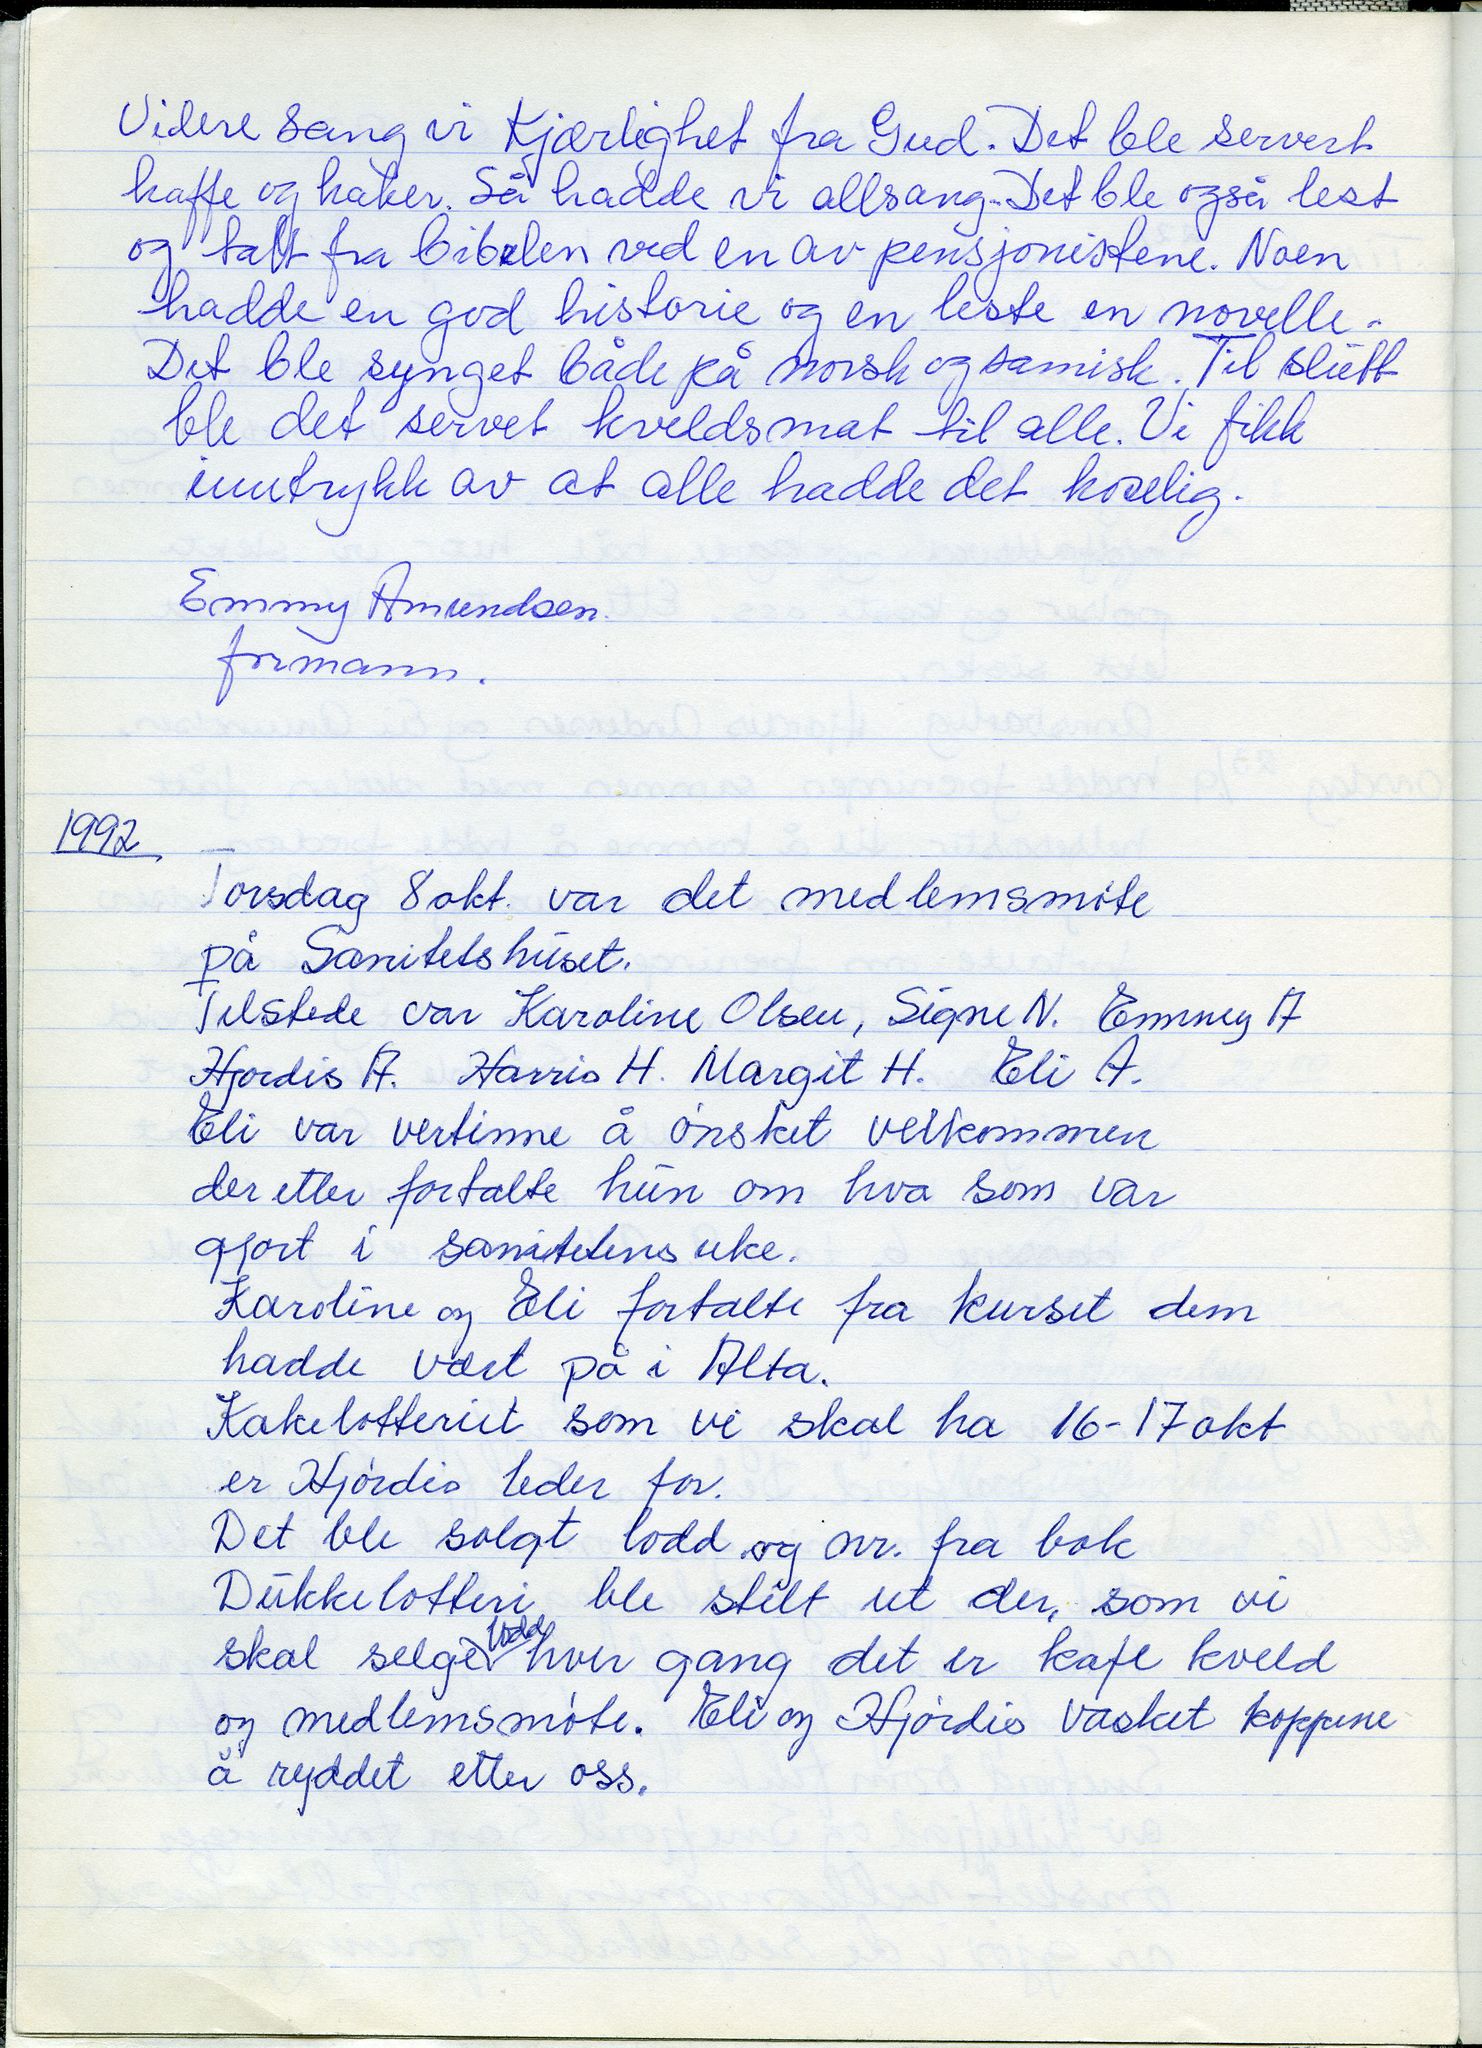 Videre sang vi Kjærlighet fra Gud. Det ble servert
kaffe og kaker. Så hadde vi allsang. Det ble også lest
og talt fra bibelen ved en av pensjonistene. Noen
hadde en god historie og en leste en novelle.
Det ble synget både på norsk og samisk. Til slutt
ble det servet kveldsmat til alle. Vi fikk
inntrykk av at alle hadde det koselig.
Emmy Amundsen.
formann.
1992
Torsdag 8 okt. var det medlemsmøte
på Sanitetshuset.
Tilstede var Karoline Olsen, Signe N. Emmy A
Hjørdis A. Harris H. Margit H. Eli A.
Eli var vertinne å ønsket velkommen
der etter fortalte hun om hva som var
gjort i sanitetens uke.
Karoline og Eli fortalte fra kurset dem
hadde vært på i Alta.
Kakelotteriet som vi skal ha 16-17 okt
er Hjørdis leder for.
Det ble solgt lodd og nr. fra bok
Dukkelotteri ble stilt ut der, som vi
skal selge lodd hver gang det er kafe kveld
og medlemsmøte. Eli og Hjørdis vasket koppene
å ryddet etter oss.